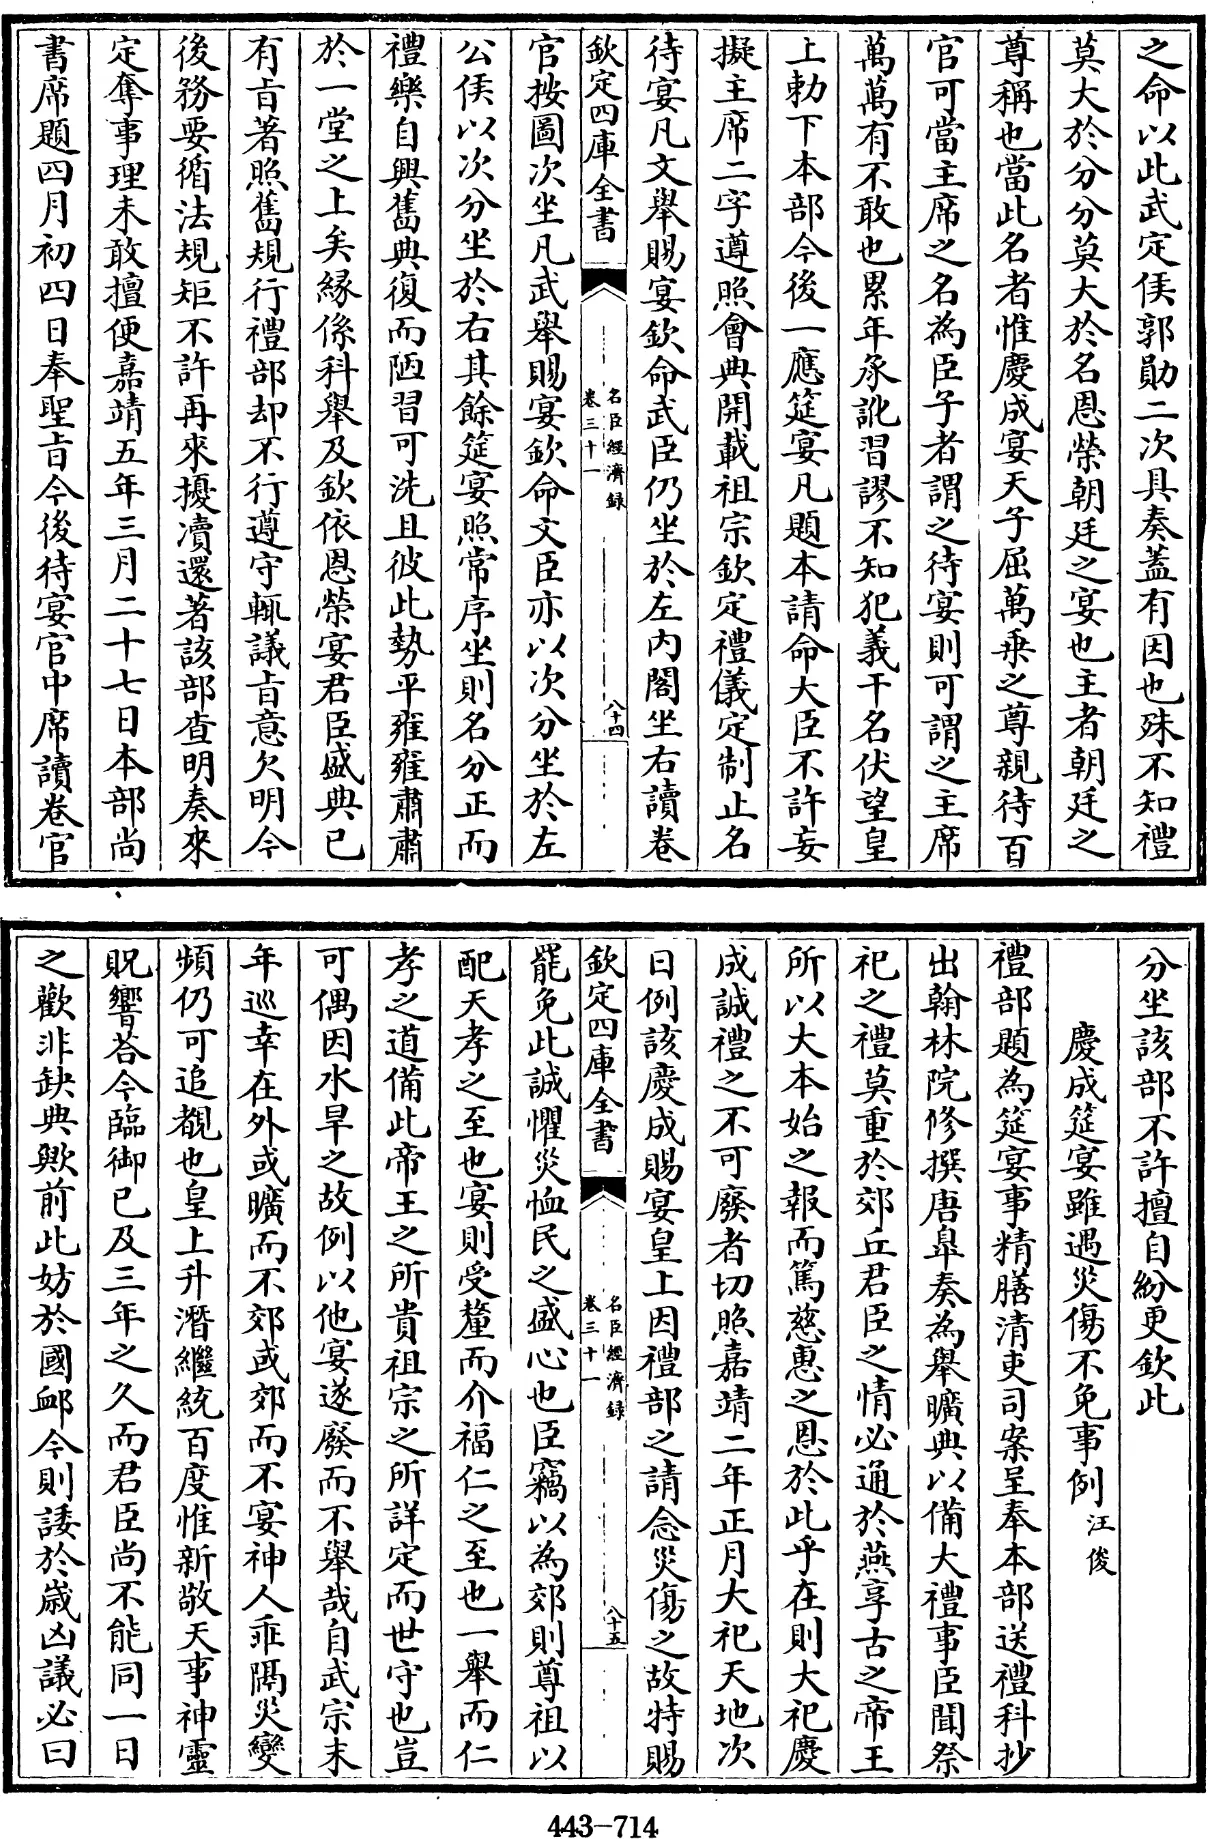 之命以此武定侯郭勛二次具奏蓋有因也殊不知禮
莫大於分分莫大於名恩榮朝廷之宴也主者朝廷之
尊稱也當此名者惟慶成宴天子屈萬乗之尊親待百
官可當主席之名為臣子者謂之待宴則可謂之主席
萬萬有不敢也累年承訛習謬不知犯義干名伏望皇
上勅下本部今後一應筵宴凡題本請命大臣不許妄
擬主席二字遵照會典開載祖宗欽定禮儀定制止名
待宴凡文舉賜宴欽命武臣仍坐於左內閣坐右讀卷
欽定四庫全書
名臣經濟録
卷三十一
八十四
官按圖次坐凡武舉賜宴欽命文臣亦以次分坐於左
公侯以次分坐於右其餘筵宴照常序坐則名分正而
禮樂自興舊典復而陋習可洗且彼此勢平雍雍肅肅
於一堂之上矣緣係科舉及欽依恩榮宴君臣盛典已
有㫖著照舊規行禮部却不行遵守輒議㫖意欠明今
後務要循法規矩不許再來擾凟還著該部查明奏來
定奪事理未敢擅便嘉靖五年三月二十七日本部尚
書席題四月初四日奉聖㫖今後待宴官中席讀卷官
分坐該部不許擅自紛更欽此
慶成筵宴雖遇災傷不免事例 汪俊
禮部題為筵宴事精膳清吏司案呈奉本部送禮科抄
出翰林院修撰唐臯奏為舉曠典以備大禮事臣聞祭
祀之禮莫重於郊丘君臣之情必通於燕享古之帝王
所以大本始之報而篤慈惠之恩於此乎在則大祀慶
成誠禮之不可廢者切照嘉靖二年正月大祀天地次
日例該慶成賜宴皇上因禮部之請念災傷之故特賜
欽定四庫全書
名臣經濟録
卷三十一
八十五
罷免此誠懼災恤民之盛心也臣竊以為郊則尊祖以
配天孝之至也宴則受釐而介福仁之至也一舉而仁
孝之道備此帝王之所貴祖宗之所詳定而世守也豈
可偶因水旱之故例以他宴遂廢而不舉哉自武宗末
年巡幸在外或曠而不郊或郊而不宴神人乖隔災變
頻仍可追覩也皇上升潛繼統百度惟新敬天事神靈
貺響荅今臨御已及三年之久而君臣尚不能同一日
之歡非缺典歟前此妨於國䘏今則諉於歳凶議必曰
443-714